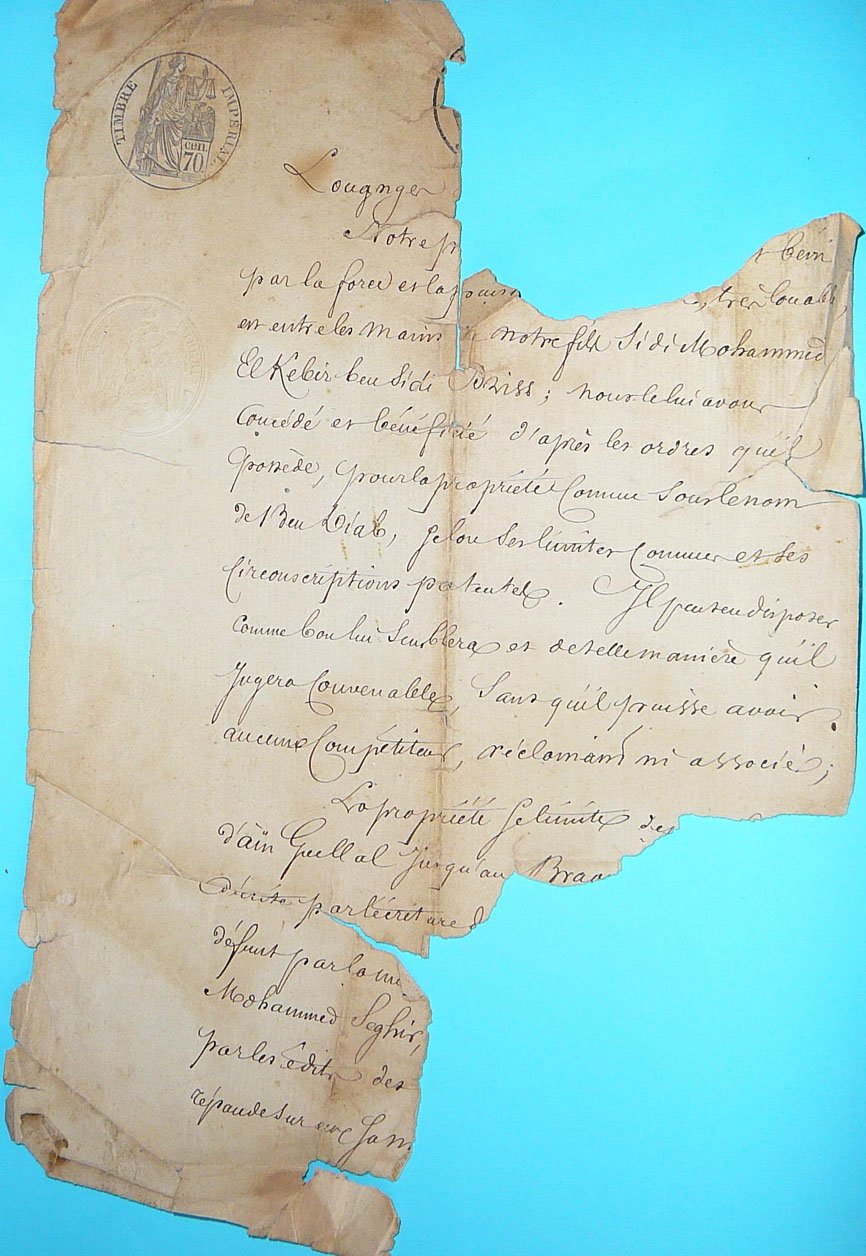 TIMBRE IMPÉRIAL
cen. 70
Notre pr
t béni
par la force et la puiss
, très louable,
est entre les mains de notre fils Sidi Mohammed
El Kebir ben Sidi Driss ; nous le lui avons
Concédé et bénéficié d'après les ordres qu'il
possède, pour la propriété Connue Sous le nom
de Ben Diab, selon Ses limites Connues et Ses
Circonscriptions patentes. Il peut en disposer
Comme bon lui Semblera et de telle manière qu'il
Jugera Convenable, Sans qu'il puisse avoir
aucun Compétiteur, réclamant ni associé ;
La propriété Se limite des
d'aïn Guellal Jusqu'au Brao
décrite par l'écriture d
défunt par la
Mohammed Seghir,
par les édits des
répande Sur eux San